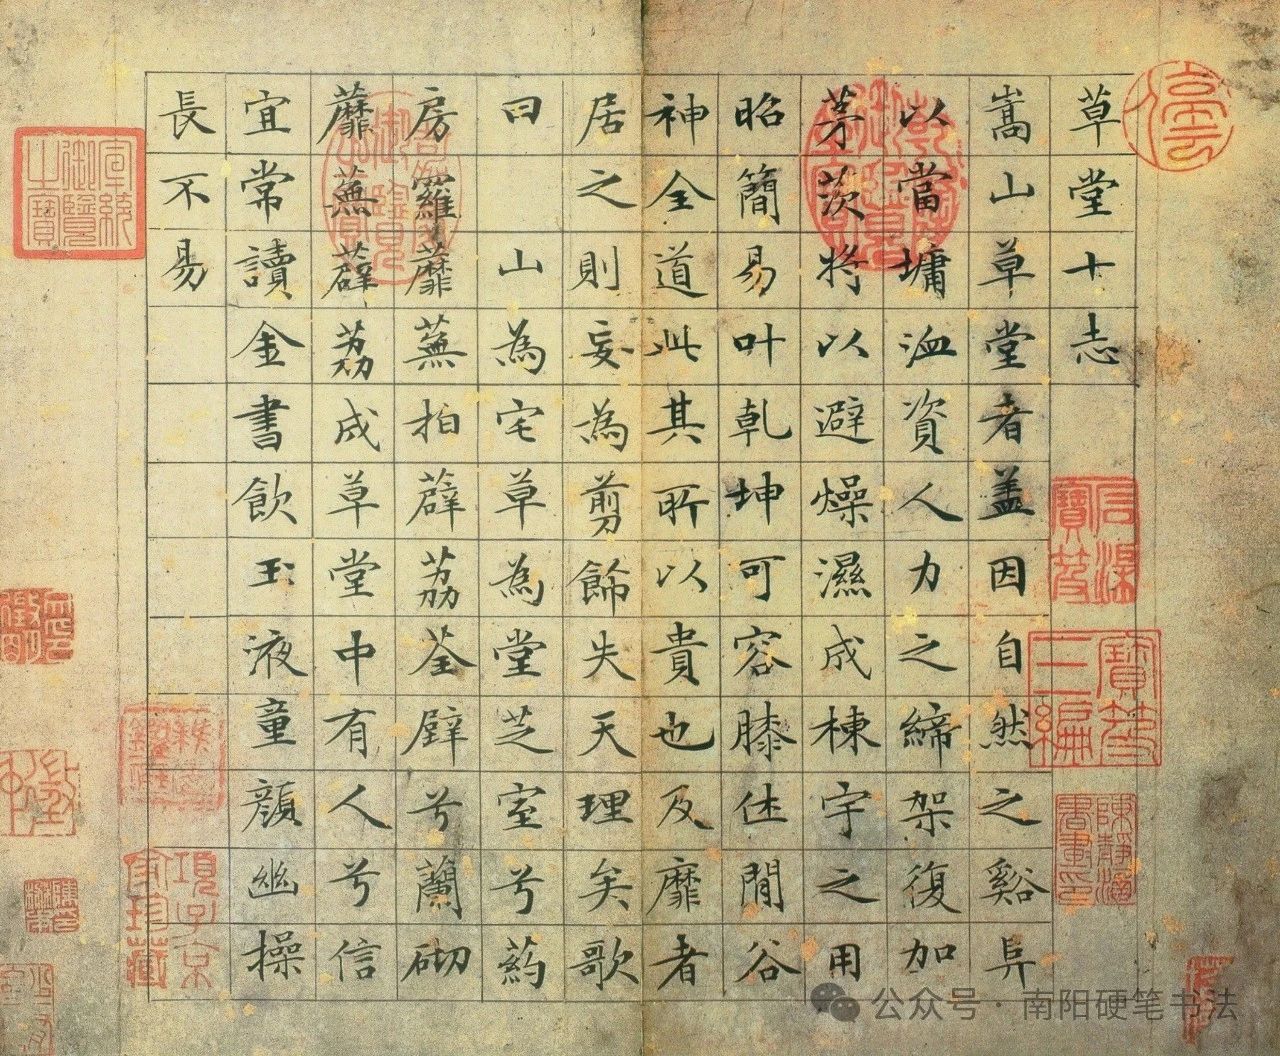 草堂十志
嵩山草堂者盖因自然之谿阜
以當墉洫資人力之締架復加
茅茨将以避燥濕成棟宇之用
昭簡易叶乾坤可容膝休閒谷
神全道此其所以貴也及靡者
居之則妄為剪餙失天理矣歌
曰 山為宅草為堂芝室兮葯
房羅蘼蕪拍薜荔荃壁兮蘭砌
蘼蕪薜荔成草堂中有人兮信
宜常讀金書飲玉液童顏幽操
長不易
石渠寶笈
寶笈三編
宣統御覽之寶
項子京家珍藏
公众号·南阳硬笔书法